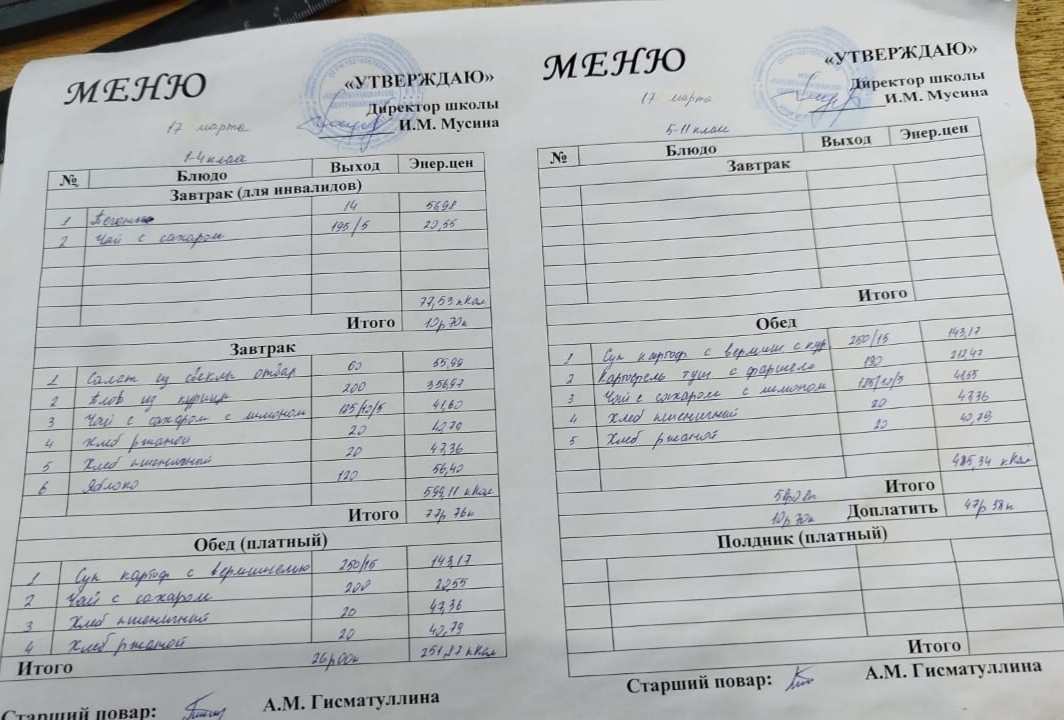 МЕНЮ
«УТВЕРЖДАЮ»
Директор школы
И.М. Мусина
17 марта
1-4 класс
№ Блюдо Выход Энер.цен
Завтрак (для инвалидов)
1 Печенье 14 56,98
2 Чай с сахаром 195/5 20,55
77,53 кКал
Итого 10р 70к
Завтрак
1 Салат из свеклы отвар 60 55,99
2 Плов из курицы 200 356,97
3 Чай с сахаром с лимоном 185/10/5 41,60
4 Хлеб ржаной 20 40,79
5 Хлеб пшеничный 20 47,36
6 Яблоко 120 56,40
599,11 кКал
Итого 77р 76к
Обед (платный)
1 Суп картоф с вермишелью 250/15 143,17
2 Чай с сахаром 200 20,55
3 Хлеб пшеничный 20 47,36
4 Хлеб ржаной 20 40,79
Итого 26р00к 251,87 кКал
Старший повар: А.М. Гисматуллина
МЕНЮ
«УТВЕРЖДАЮ»
Директор школы
И.М. Мусина
17 марта
5-11 класс
№ Блюдо Выход Энер.цен
Завтрак
Итого
Обед
1 Суп картоф с вермиш с кур 250/15 143,17
2 Картофель туш с фаршем 190 212,47
3 Чай с сахаром с лимоном 185/10/5 41,55
4 Хлеб пшеничный 20 47,36
5 Хлеб ржаной 20 40,79
485,34 кКал
Итого
10р 70к Доплатить 47р 38к
Полдник (платный)
Итого
Старший повар: А.М. Гисматуллина